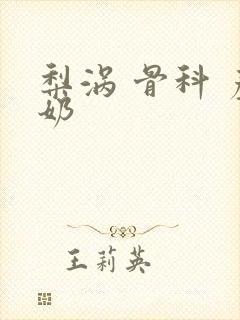 梨涡 骨科
奶
王莉英